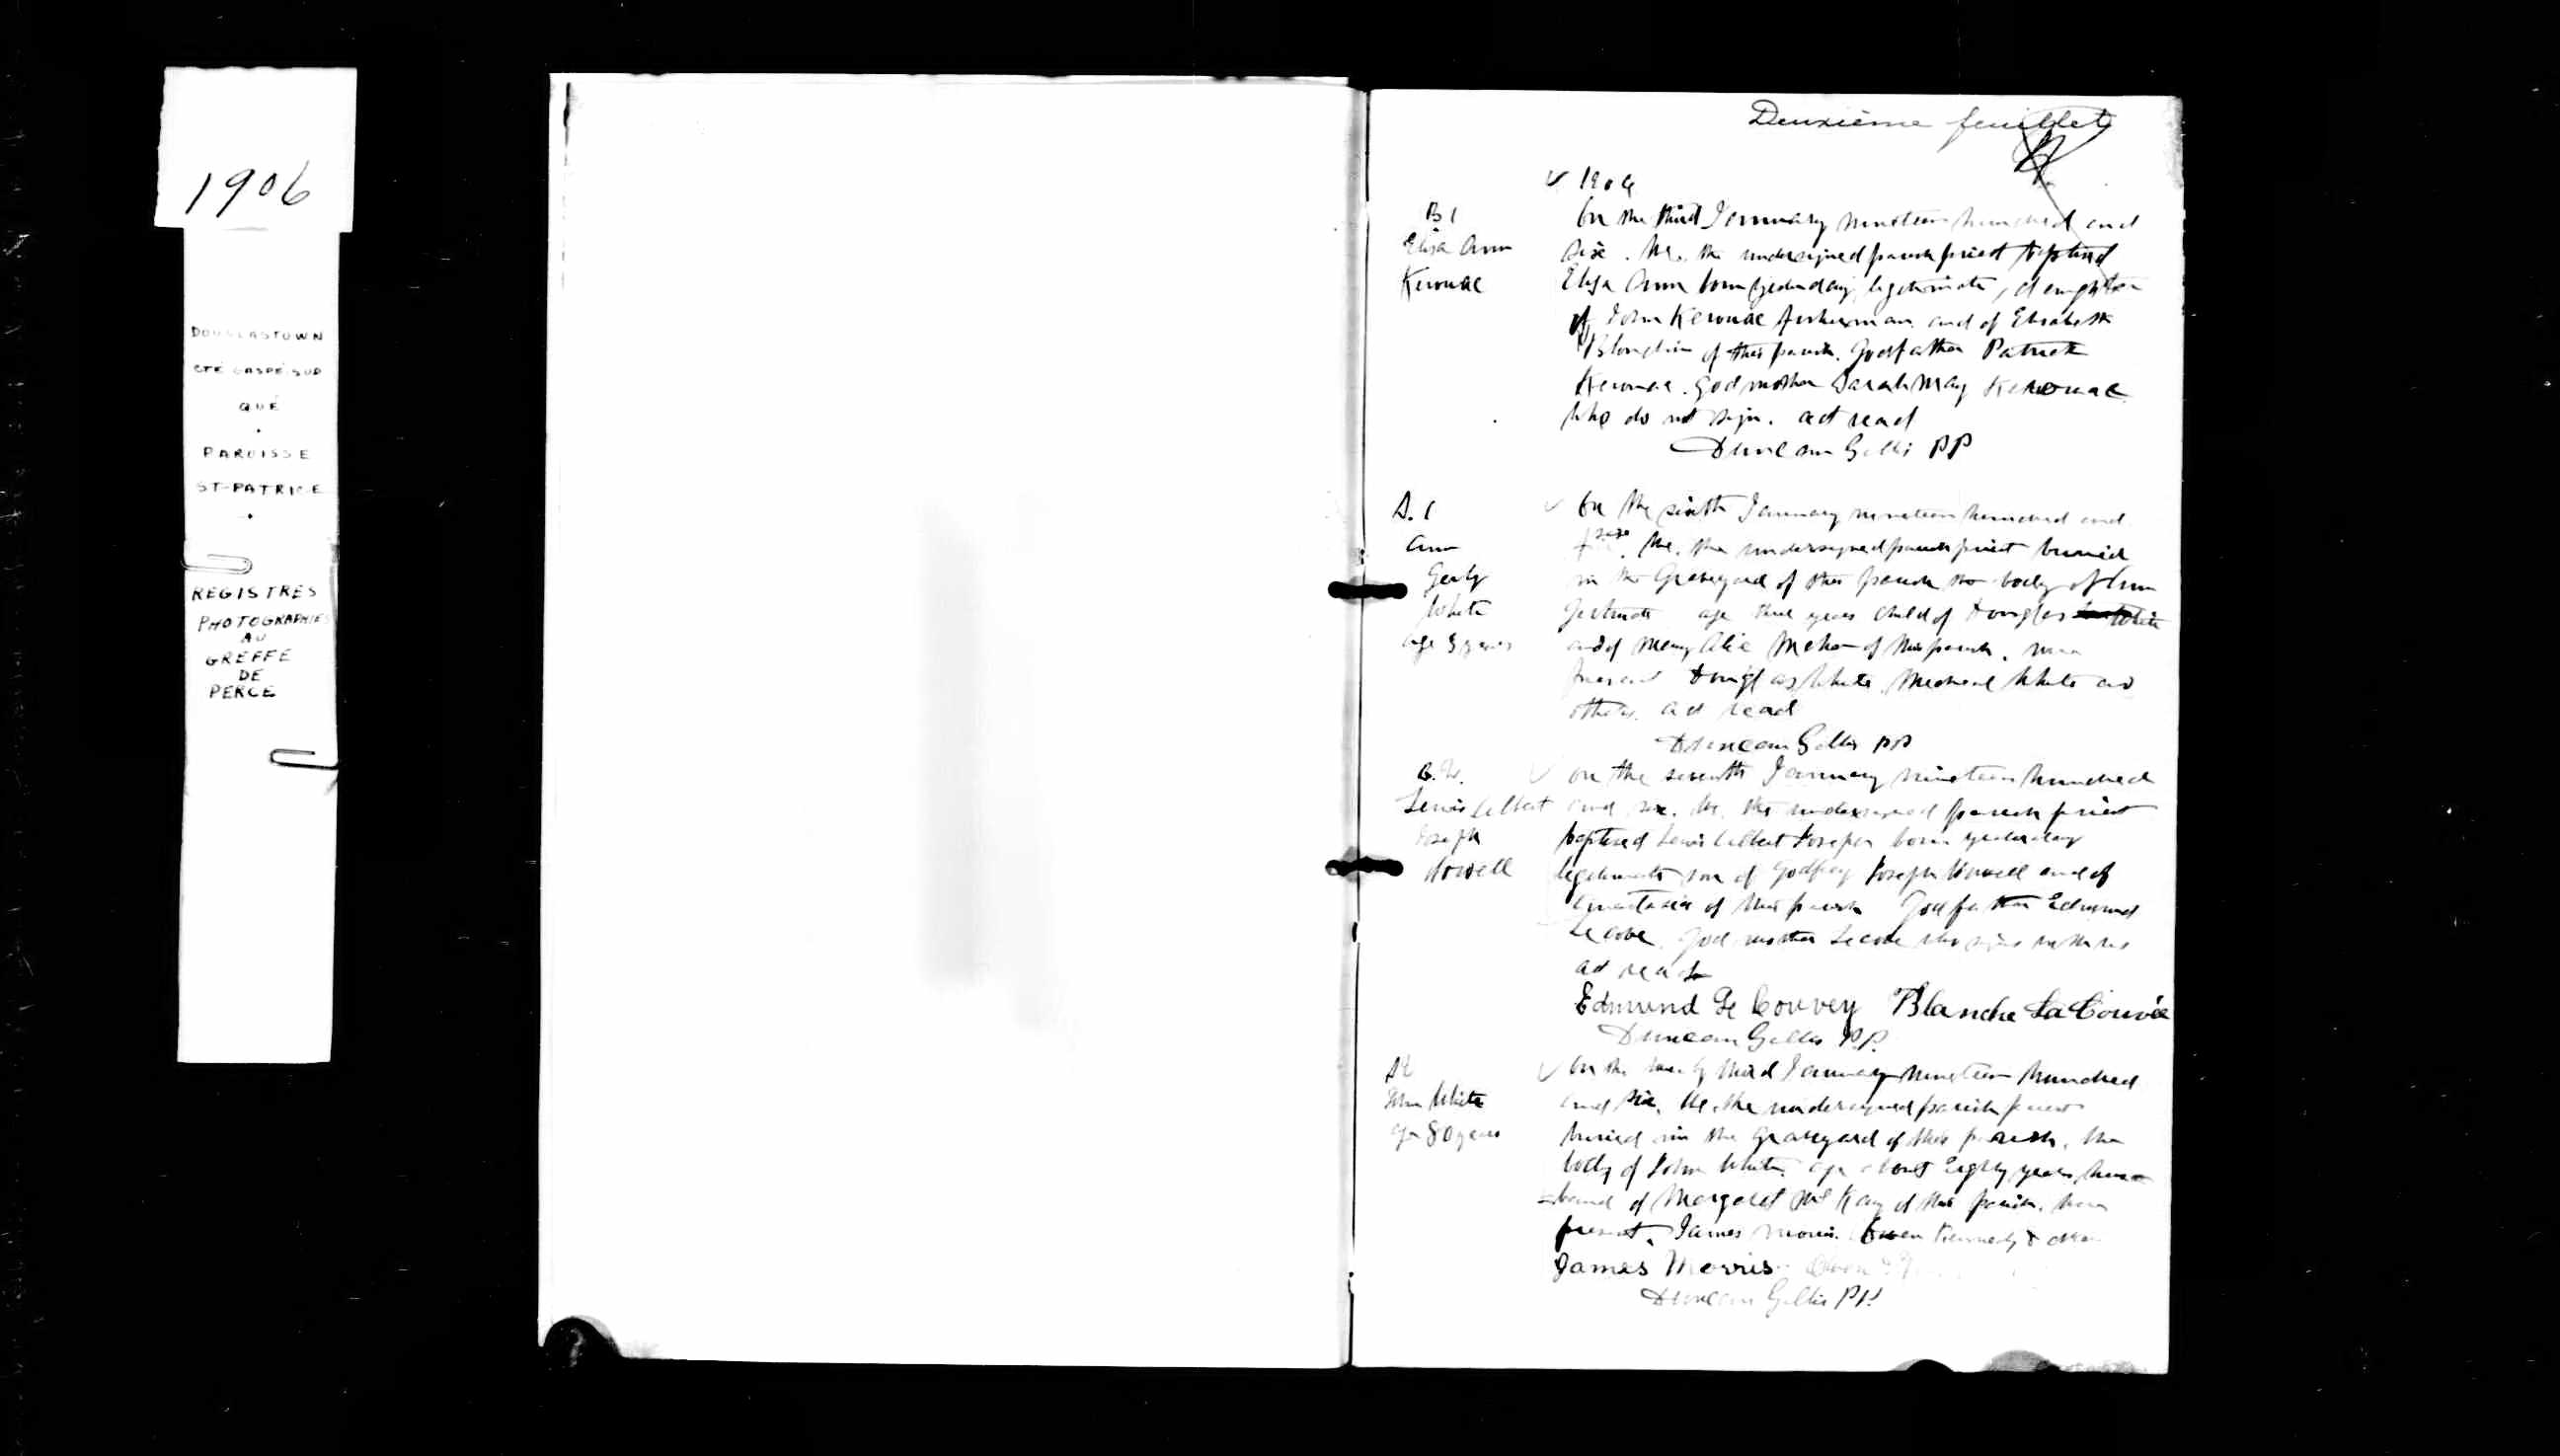 1906
DOUGLASTOWN
CTÉ GASPÉ SUD
QUÉ
PAROISSE
ST-PATRICE
REGISTRES
PHOTOGRAPHIES
AU
GREFFE
DE
PERCE
Deuxième feuillet
1906
B 1
Elisa Ann
Kerouac
On the third January nineteen hundred and
six. We, the undersigned parish priest baptised
Elisa Ann born yesterday, legitimate, daughter
of John Kerouac fisherman and of Elisabeth
of this parish. Godfather Patrick
Kerouac. Godmother Sarah May Kerouac
who do not sign. act read
Duncan Gillis PP
S. 1
Ann
Gerty
White
age 3 years
On the sixth January nineteen hundred and
six. We, the undersigned parish priest buried
in the Graveyard of this parish the body of Ann
Gertrude age three years child of Douglas White
and of Mary Alice of this parish. were
present Douglas White, Micheal White and
others. act read
Duncan Gillis PP
Lewis Albert
Joseph
Howell
on the seventh January nineteen hundred
and six. We, the undersigned parish priest
baptised Lewis Albert Joseph born yesterday
legitimate son of Godfrey Joseph Howell and of
of this parish Godfather Edmund
God mother who
act read
Edmund Le Couvey Blanche La Couvée
Duncan Gillis P.P.
S2
John White
age 80 years
On the third January nineteen hundred
and six. We, the undersigned parish priest
buried in the Graveyard of this parish, the
body of John White, age about Eighty years, hus
=band of Margaret Mc Kay of this parish. were
present, James Morris. Owen Kennedy &
James Morris Owen
Duncan Gillis PP